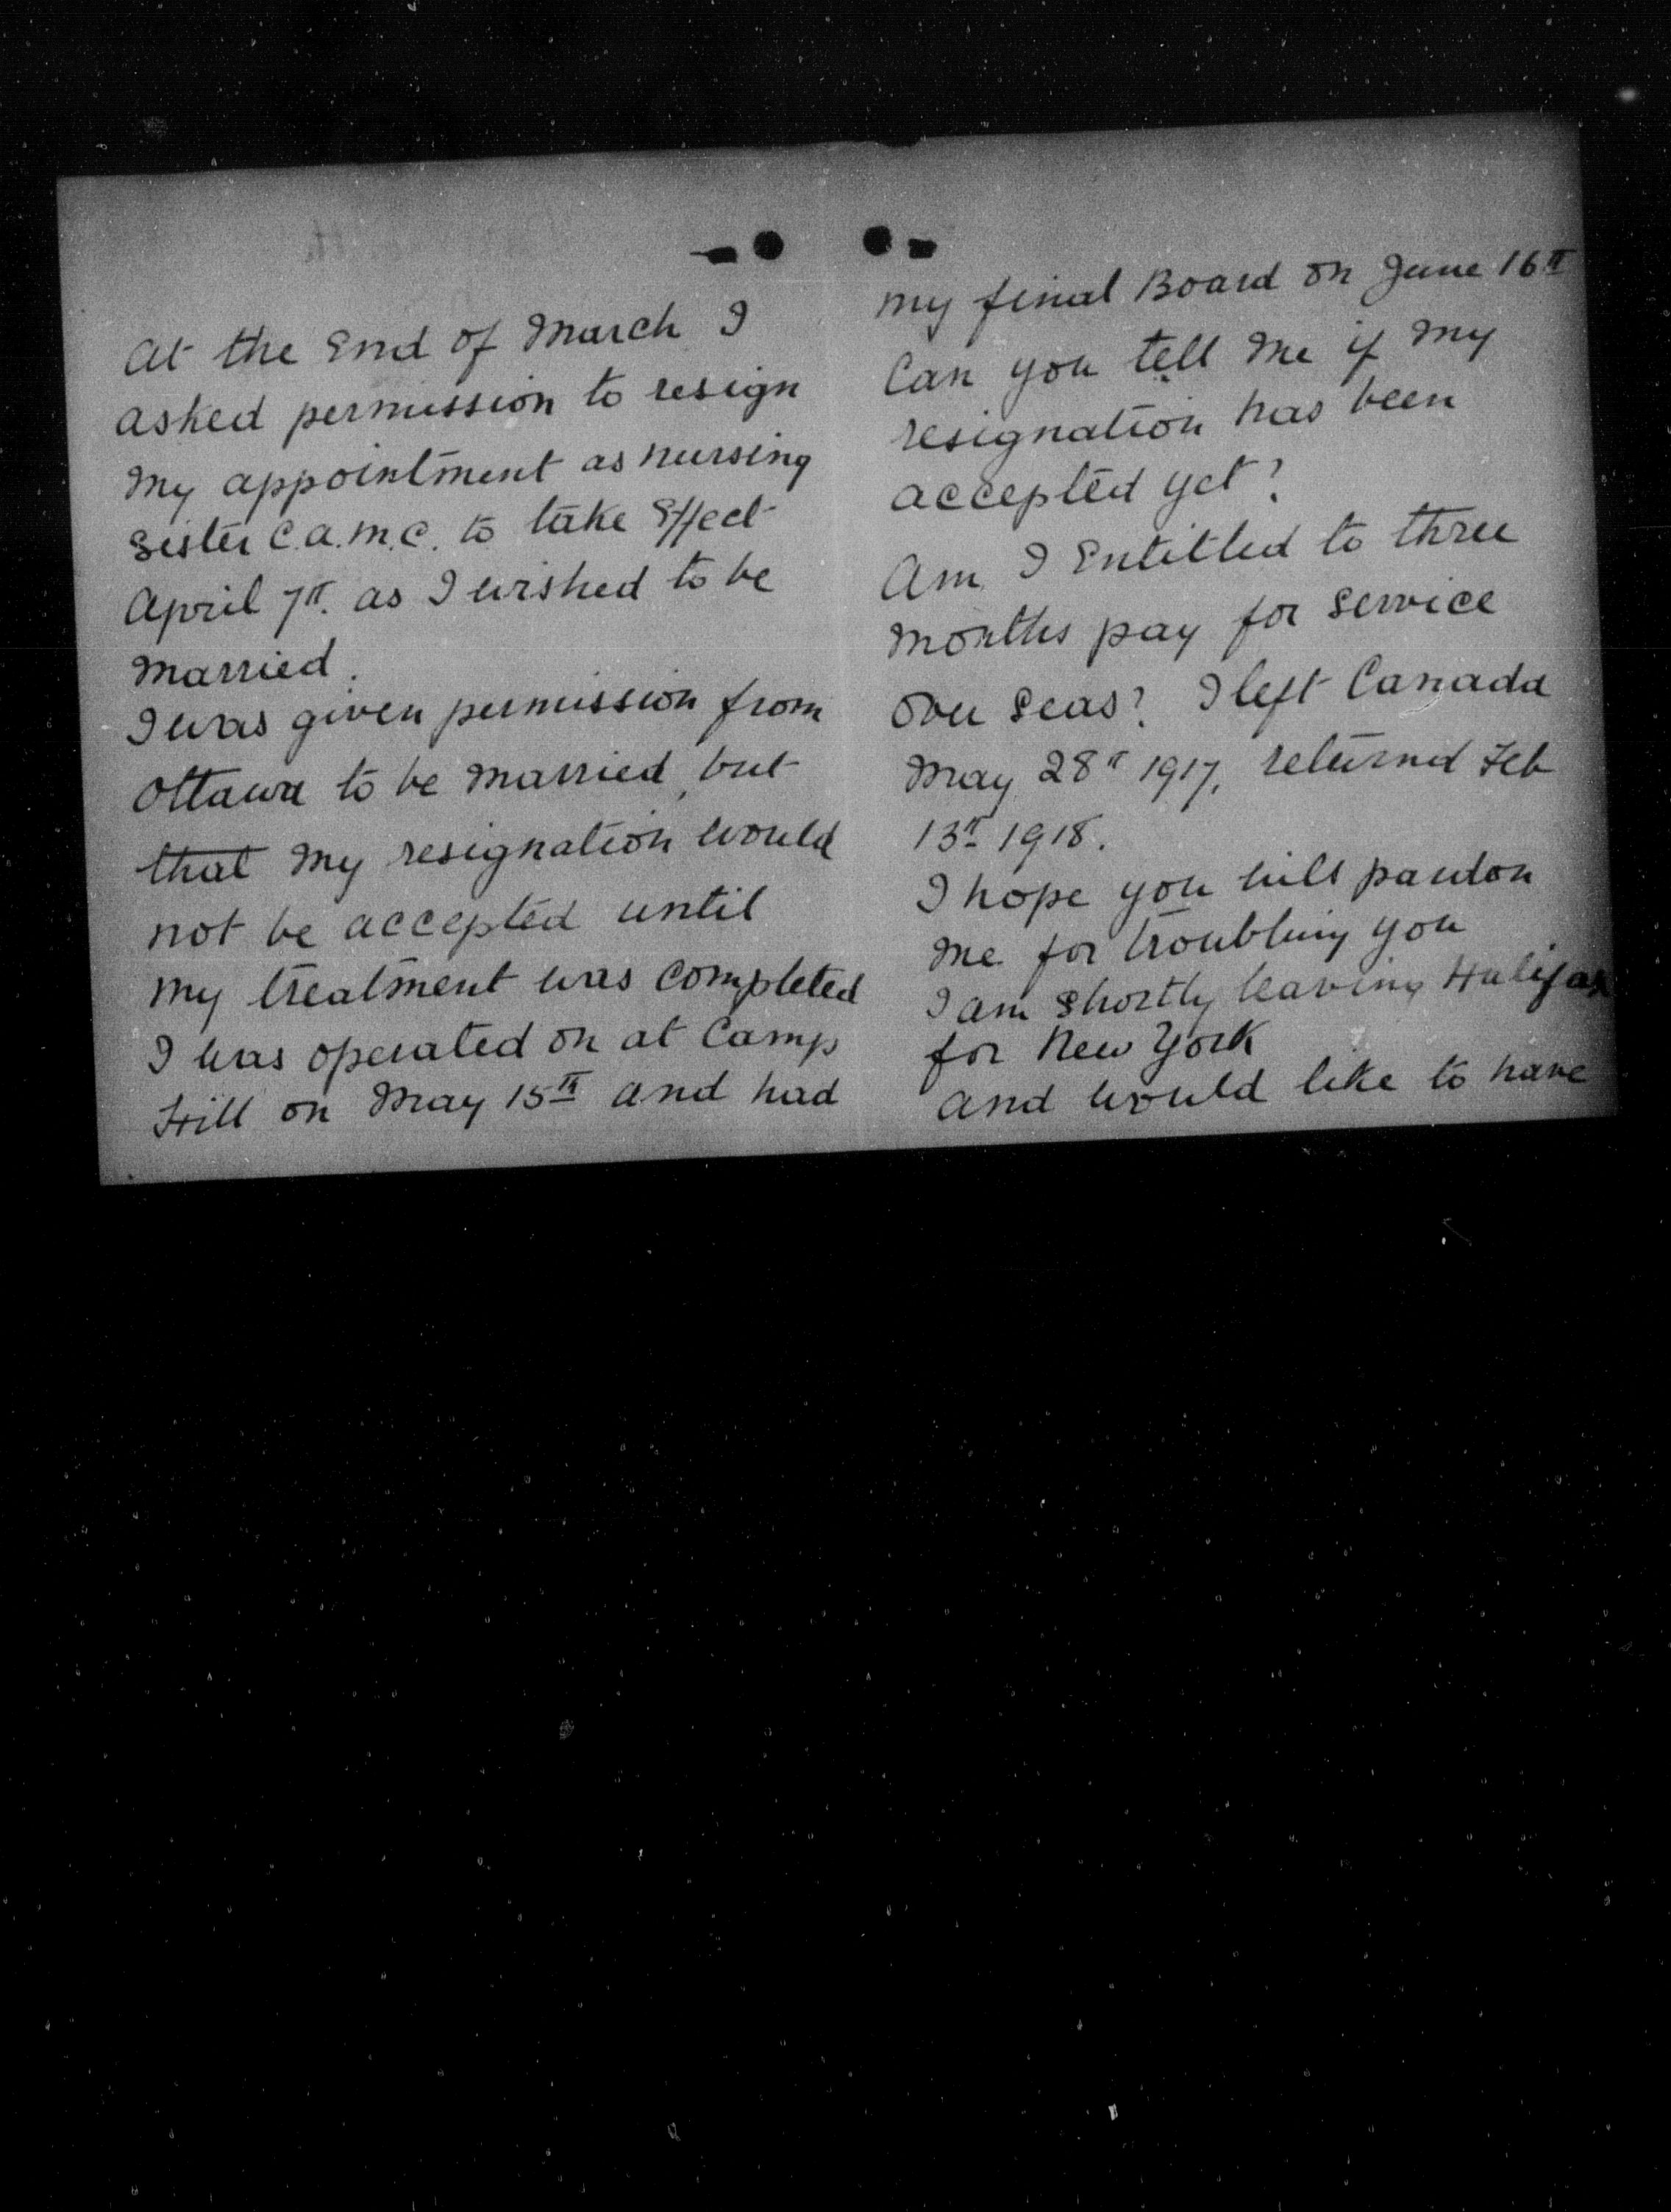 At the End of March I
asked permission to resign
my appointment as nursing
Sister C.A.M.C. to take Effect
April 7th. as I wished to be
married.
I was given permission from
Ottawa to be married, but
that my resignation would
not be accepted until
my treatment was completed
I was operated on at Camp
Hill on May 15th and had
my final Board on June 16th
Can you tell me if my
resignation has been
accepted yet?
Am I Entitled to three
months pay for service
over seas? I left Canada
May 28th 1917, returned Feb
13th 1918.
I hope you will pardon
me for troubling you
I am shortly leaving Halifax
for New York
and would like to have